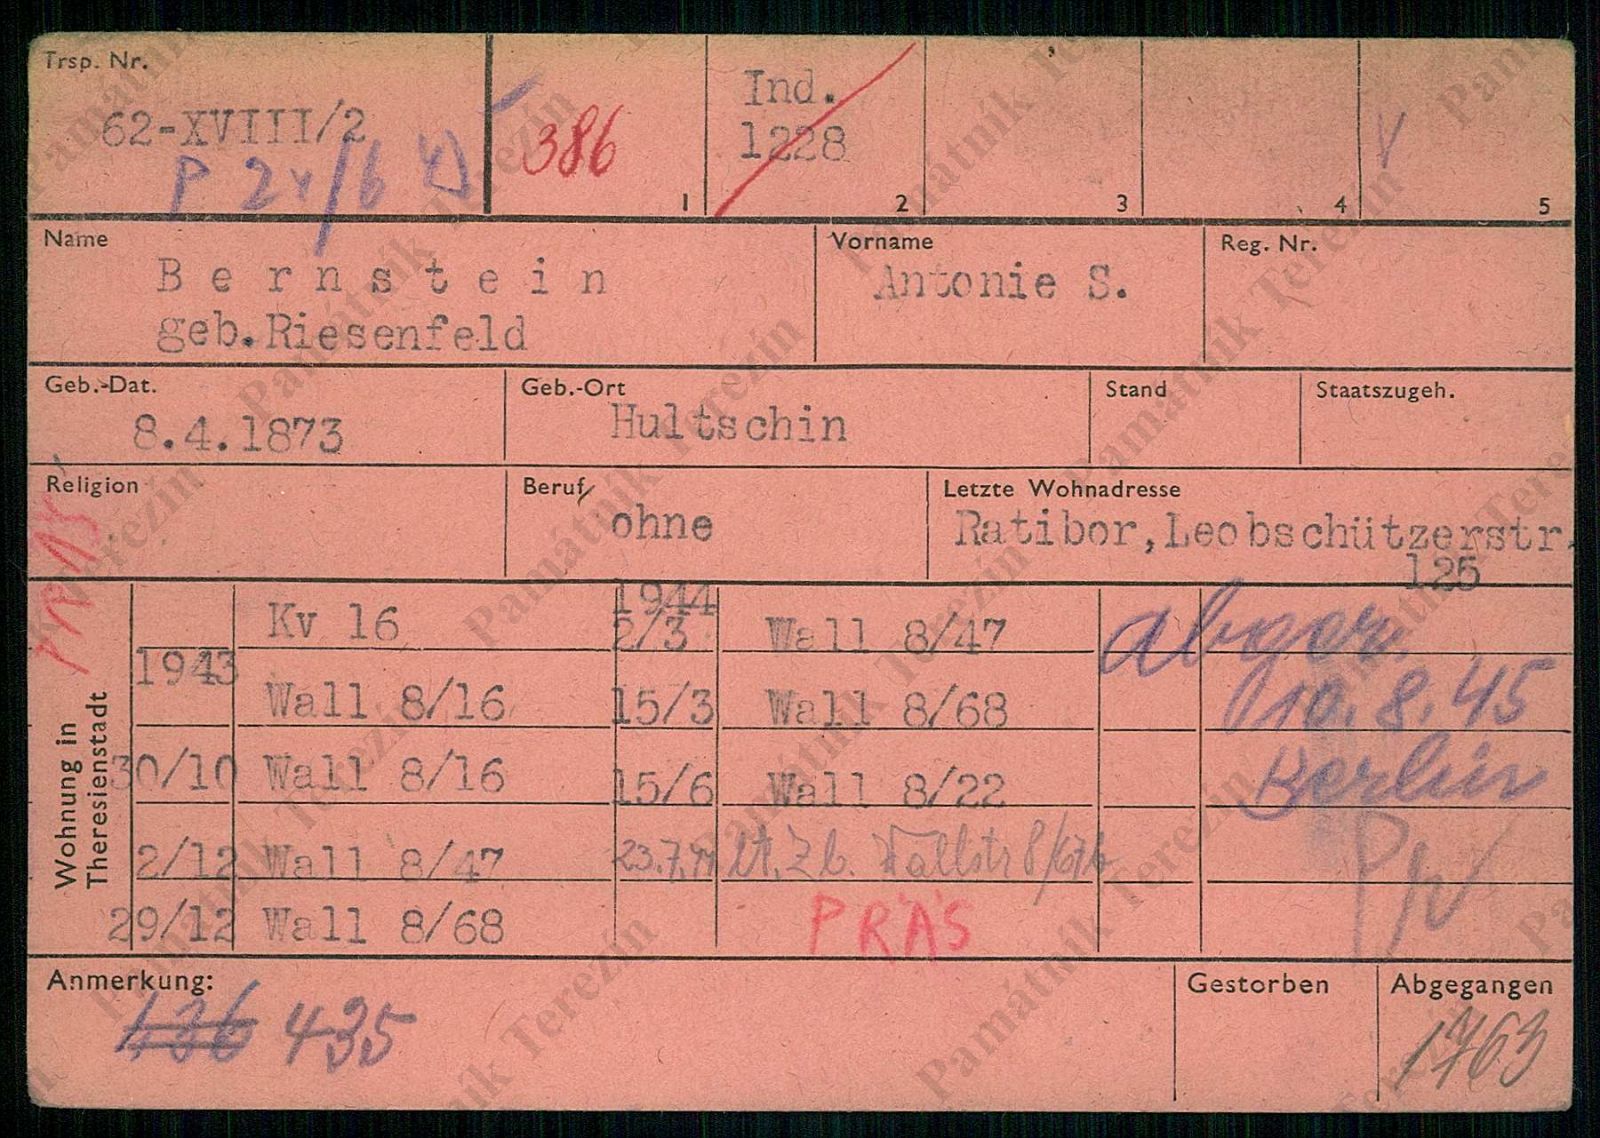 Trsp. Nr.
62-XVIII/2
386
1
Ind.
1228
2
3
4
5
Name
Bernstein
geb. Riesenfeld
Vorname
Antonie S.
Reg. Nr.
Geb.-Dat.
8.4.1873
Geb.-Ort
Hultschin
Stand
Staatszugeh.
Religion
Beruf
ohne
Letzte Wohnadresse
Ratibor, Leobschützerstr.
125
Wohnung in
Theresienstadt
Kv 16
1943
Wall 8/16
30/10 Wall 8/16
2/12 Wall 8/47
29/12 Wall 8/68
1944
2/3 Wall 8/47
15/3 Wall 8/68
15/6 Wall 8/22
23.7.44 Wallstr 8/67b
PRÄS
abger.
10.8.45
Berlin
Anmerkung:
435
Gestorben
Abgegangen
1763
Památník Terezín